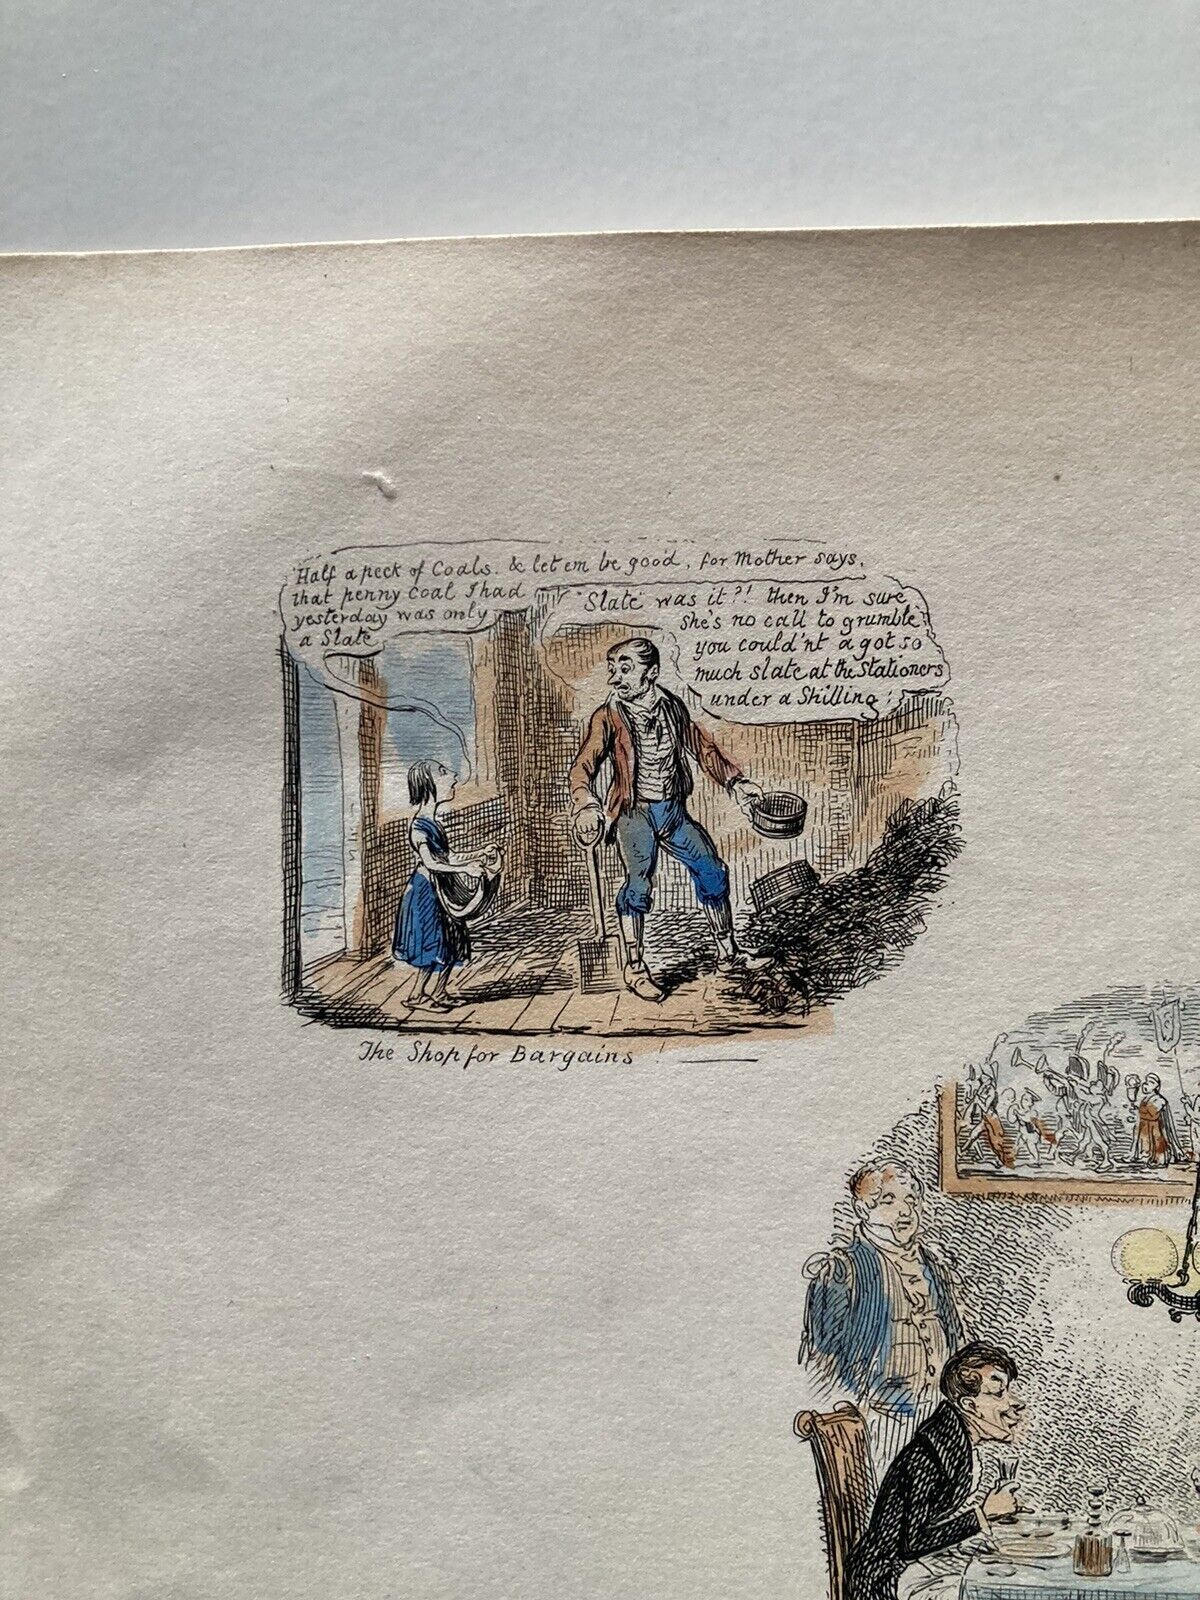 'Half a peck of Coals. & let em be good, for Mother says,
that penny Coal I had
yesterday was only
a Slate
"Slate was it?! then I'm sure
she's no call to grumble,
you could'nt a got so
much slate at the Stationers
under a Shilling!
The Shop for Bargains!